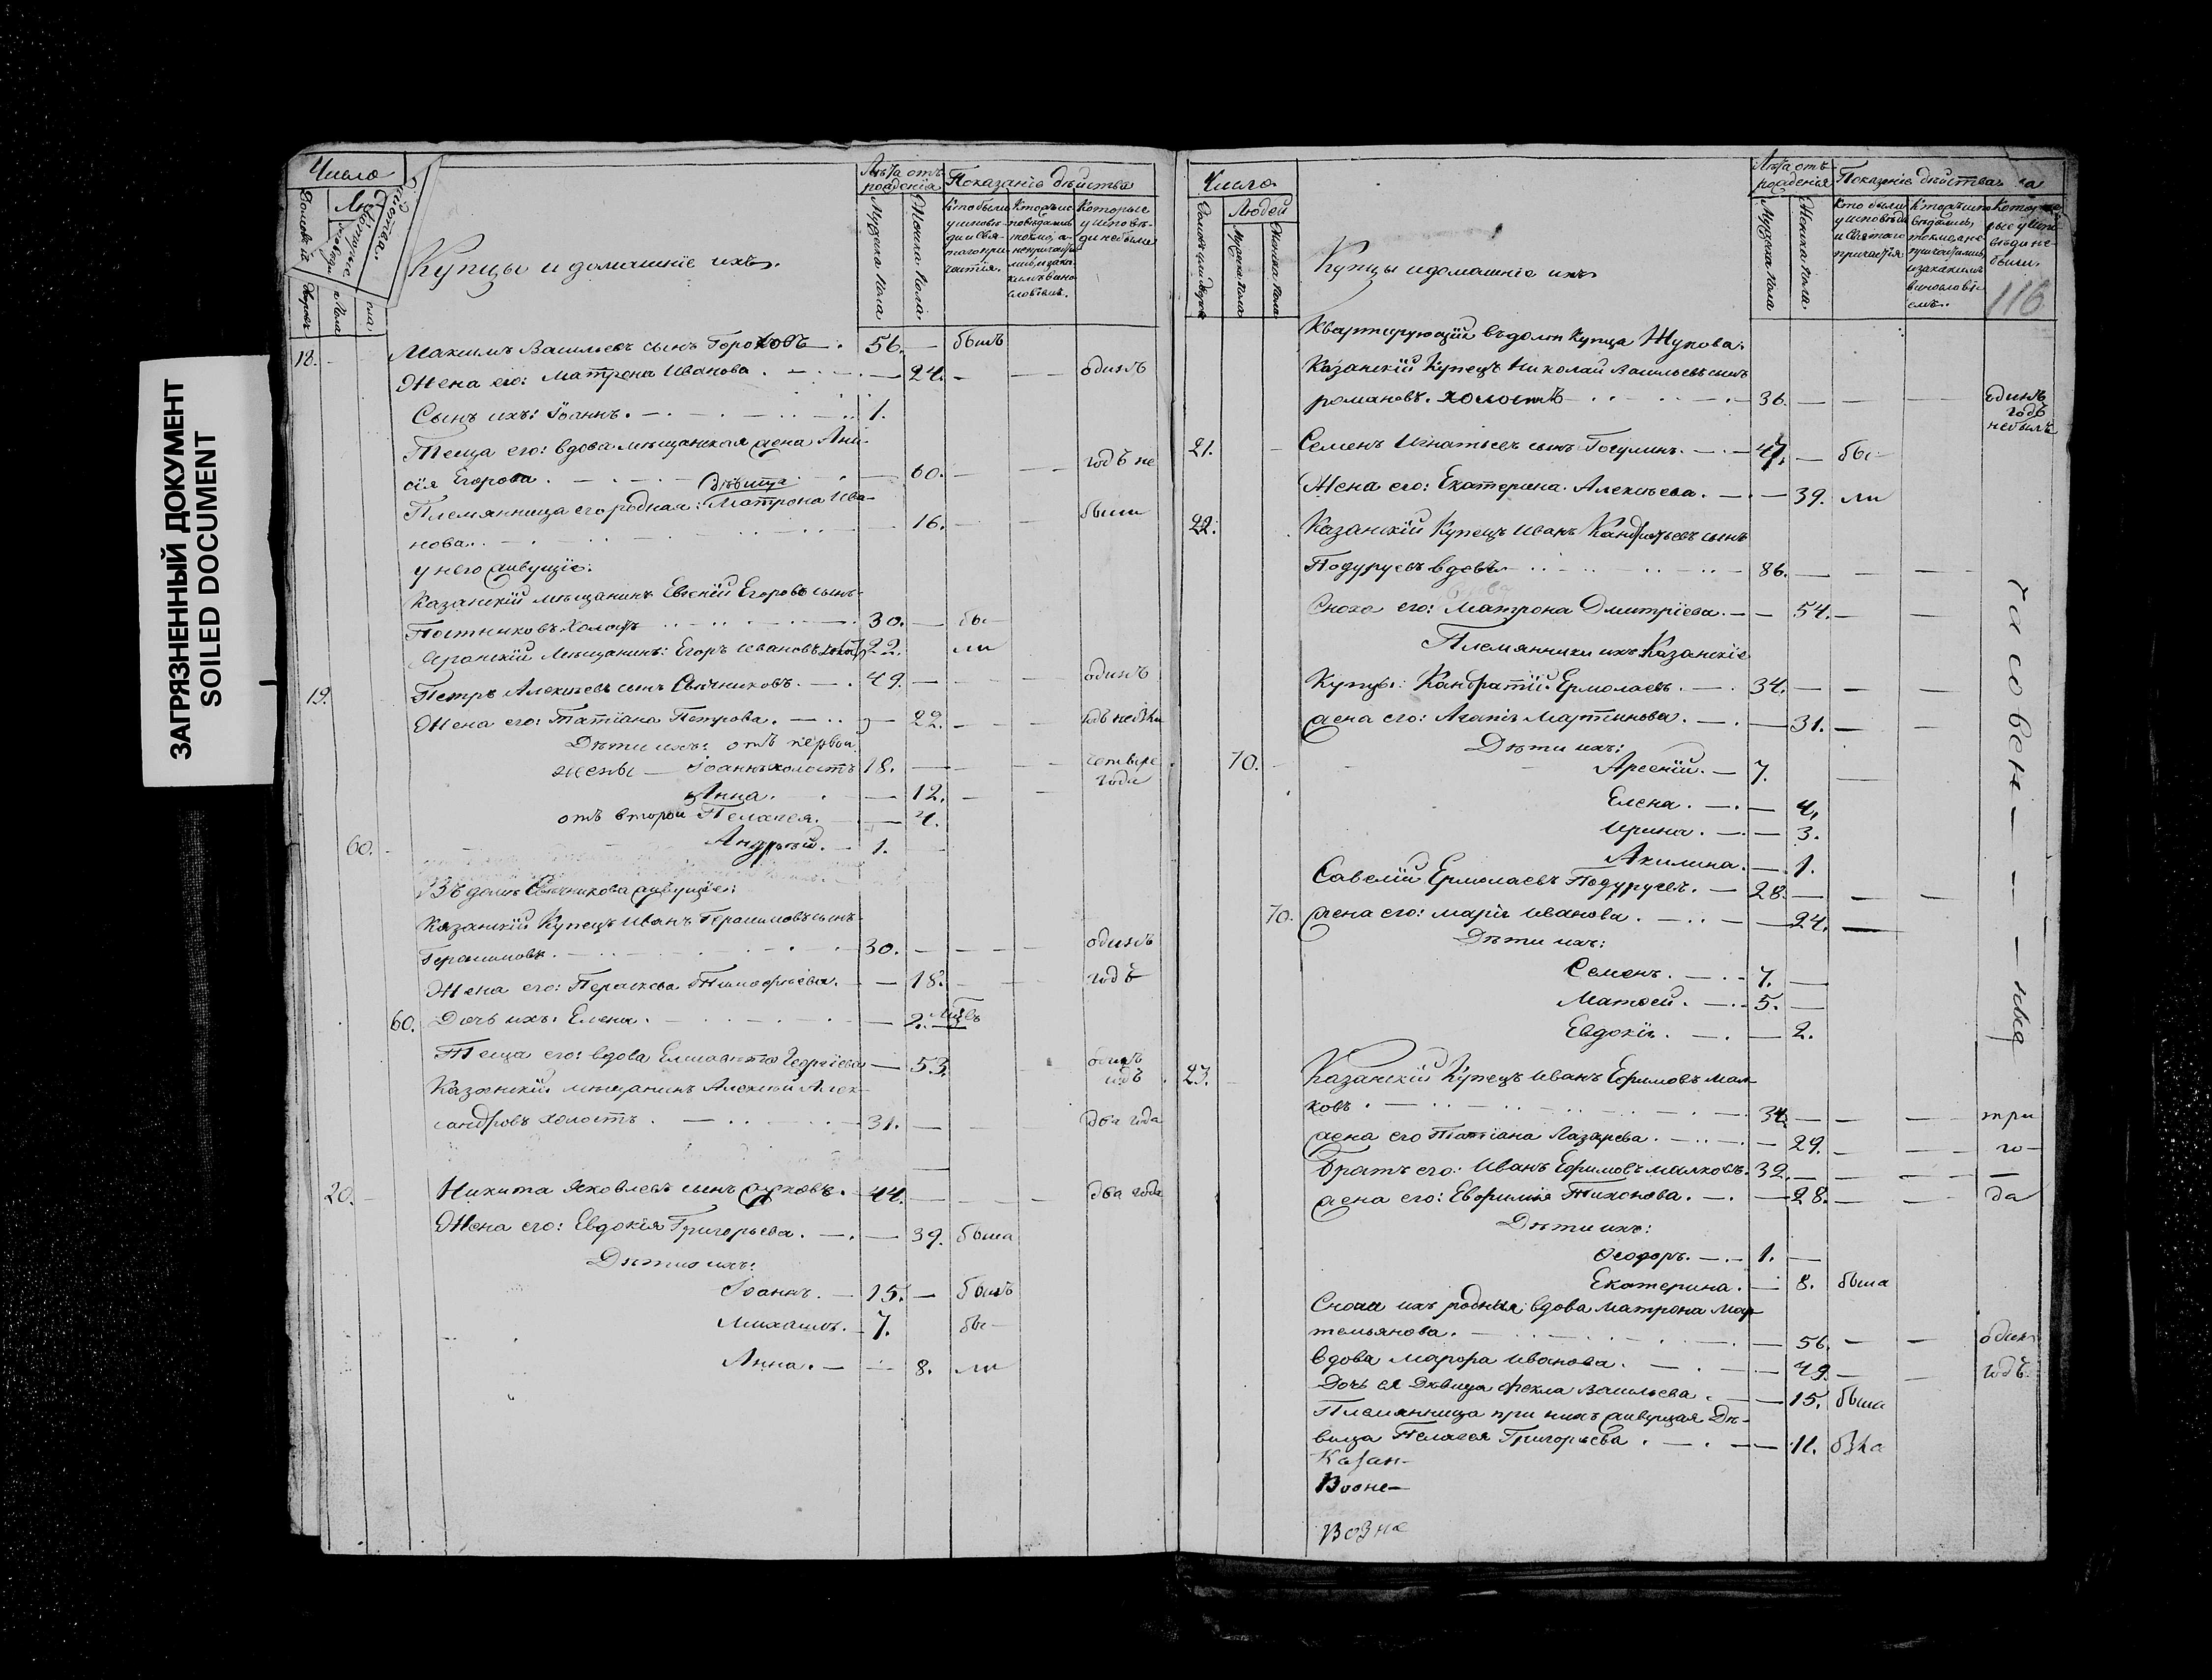 ЗАГРЯЗНЕННЫЙ ДОКУМЕНТ
SOILED DOCUMENT
Число
Лѣта отъ рожденія
Показаніе дѣйства
Мужеска пола
Женска пола
Кто были у исповѣди и святаго причастія.
Которые у исповѣди не были
Купцы и домашніе ихъ.
18. Максимъ Васильевъ сынъ Гороховъ 56. былъ
Жена его: Матрена Иванова. 24. одинъ
Сынъ ихъ: Іоаннъ. 1.
Теща его: вдова мѣщанская жена Ани-
сія Егорова. 60. годъ не
дѣвица
Племянница его родная: Матрона Ива-
нова. 16. были
у него живущіе:
Казанскій мѣщанинъ Евгеній Егоровъ сынъ
Постниковъ холостъ 30. бы-
мѣщанинъ: Егоръ Ивановъ 22. ли
19. Петръ Алексѣевъ сынъ Свѣчниковъ. 49. одинъ
Жена его: Татіана Петрова. 22.
Дѣти ихъ: отъ первой
жены — Іоаннъ холостъ 18. четыре
года
Анна. 12.
отъ второй Пелагея. 4.
60. Андрей. 1.
Въ домѣ Свѣчникова живущіе:
Казанскій Купецъ Иванъ Герасимовъ сынъ
Герасимовъ. 30. одинъ
Жена его: Параскева Тимофѣева. 18. годъ
60. Дочь ихъ: Елена. 2.
Теща его: вдова Елисавета Георгіева 53. одинъ
годъ
Казанскій мѣщанинъ Алексѣй Алек-
сандровъ холостъ. 31. два года
20. Никита Яковлевъ сынъ Жуковъ. 44. два года
Жена его: Евдокія Григорьева. 39. была
Дѣти ихъ:
Іоаннъ. 15. былъ
Михаилъ. 7. бы-
Анна. 8. ли
Число
Людей
Мужеска пола
Женска пола
Лѣта отъ рожденія
Показаніе дѣйства
Мужеска пола
Женска пола
Кто были у исповѣди и святаго причастія
116
Купцы и домашніе ихъ
Квартирующій въ домѣ Купца Жукова:
Казанскій Купецъ Николай Васильевъ сынъ
Романовъ. холостъ 36. одинъ
годъ
не былъ
21. Семенъ Игнатьевъ сынъ 47. бы-
Жена его: Екатерина Алексѣева. 39. ли
22. Казанскій Купецъ Иванъ Кандратьевъ сынъ
Подуруевъ вдовъ 86.
Сноха его: Матрона Дмитріева. 54.
Племянники ихъ Казанскіе
Купцы: Кандратій Ермолаевъ. 34.
жена его: Агапія Мартинова. 31.
Дѣти ихъ:
70. Арсеній. 7.
Елена. 4.
Ирина. 3.
Акилина. 1.
Савелій Ермолаевъ Подуруевъ. 28.
70. жена его: Марія Иванова. 24.
Дѣти ихъ:
Семенъ. 7.
Матвей. 5.
Евдокія. 2.
часовен — — — ные
23. Казанскій Купецъ Иванъ Ефимовъ Мал-
ковъ. 34. три
жена его Татіана Лазарева. 29. го-
братъ его: Иванъ Ефимовъ Малковъ. 32.
жена его: Евфимія Тихонова. 28. да
Дѣти ихъ:
Ѳеодоръ. 1.
Екатерина. 8. была
Снохи ихъ родныя: вдова Матрона Мар-
темьянова. 56. одинъ
вдова Марфа Иванова. 49. годъ.
Дочь ея Дѣвица Фекла Васильева. 15. была
Племянница при нихъ живущая Дѣ-
вица Пелагея Григорьева. 11. была
Казан-
Возне-
Возне